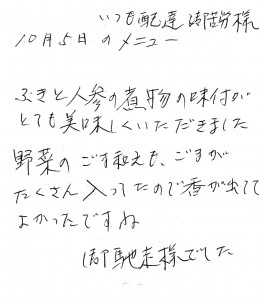 いつも配達御苦労様
10月5日のメニュー
ふきと人参の煮物の味付が
とても美味しくいただきました
野菜のごま和えも、ごまが
たくさん入ってたので香が出てて
よかったですね
御馳走様でした